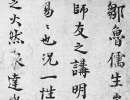 鄒魯儒生
師友之講明
易々也況一性
之火然泉達